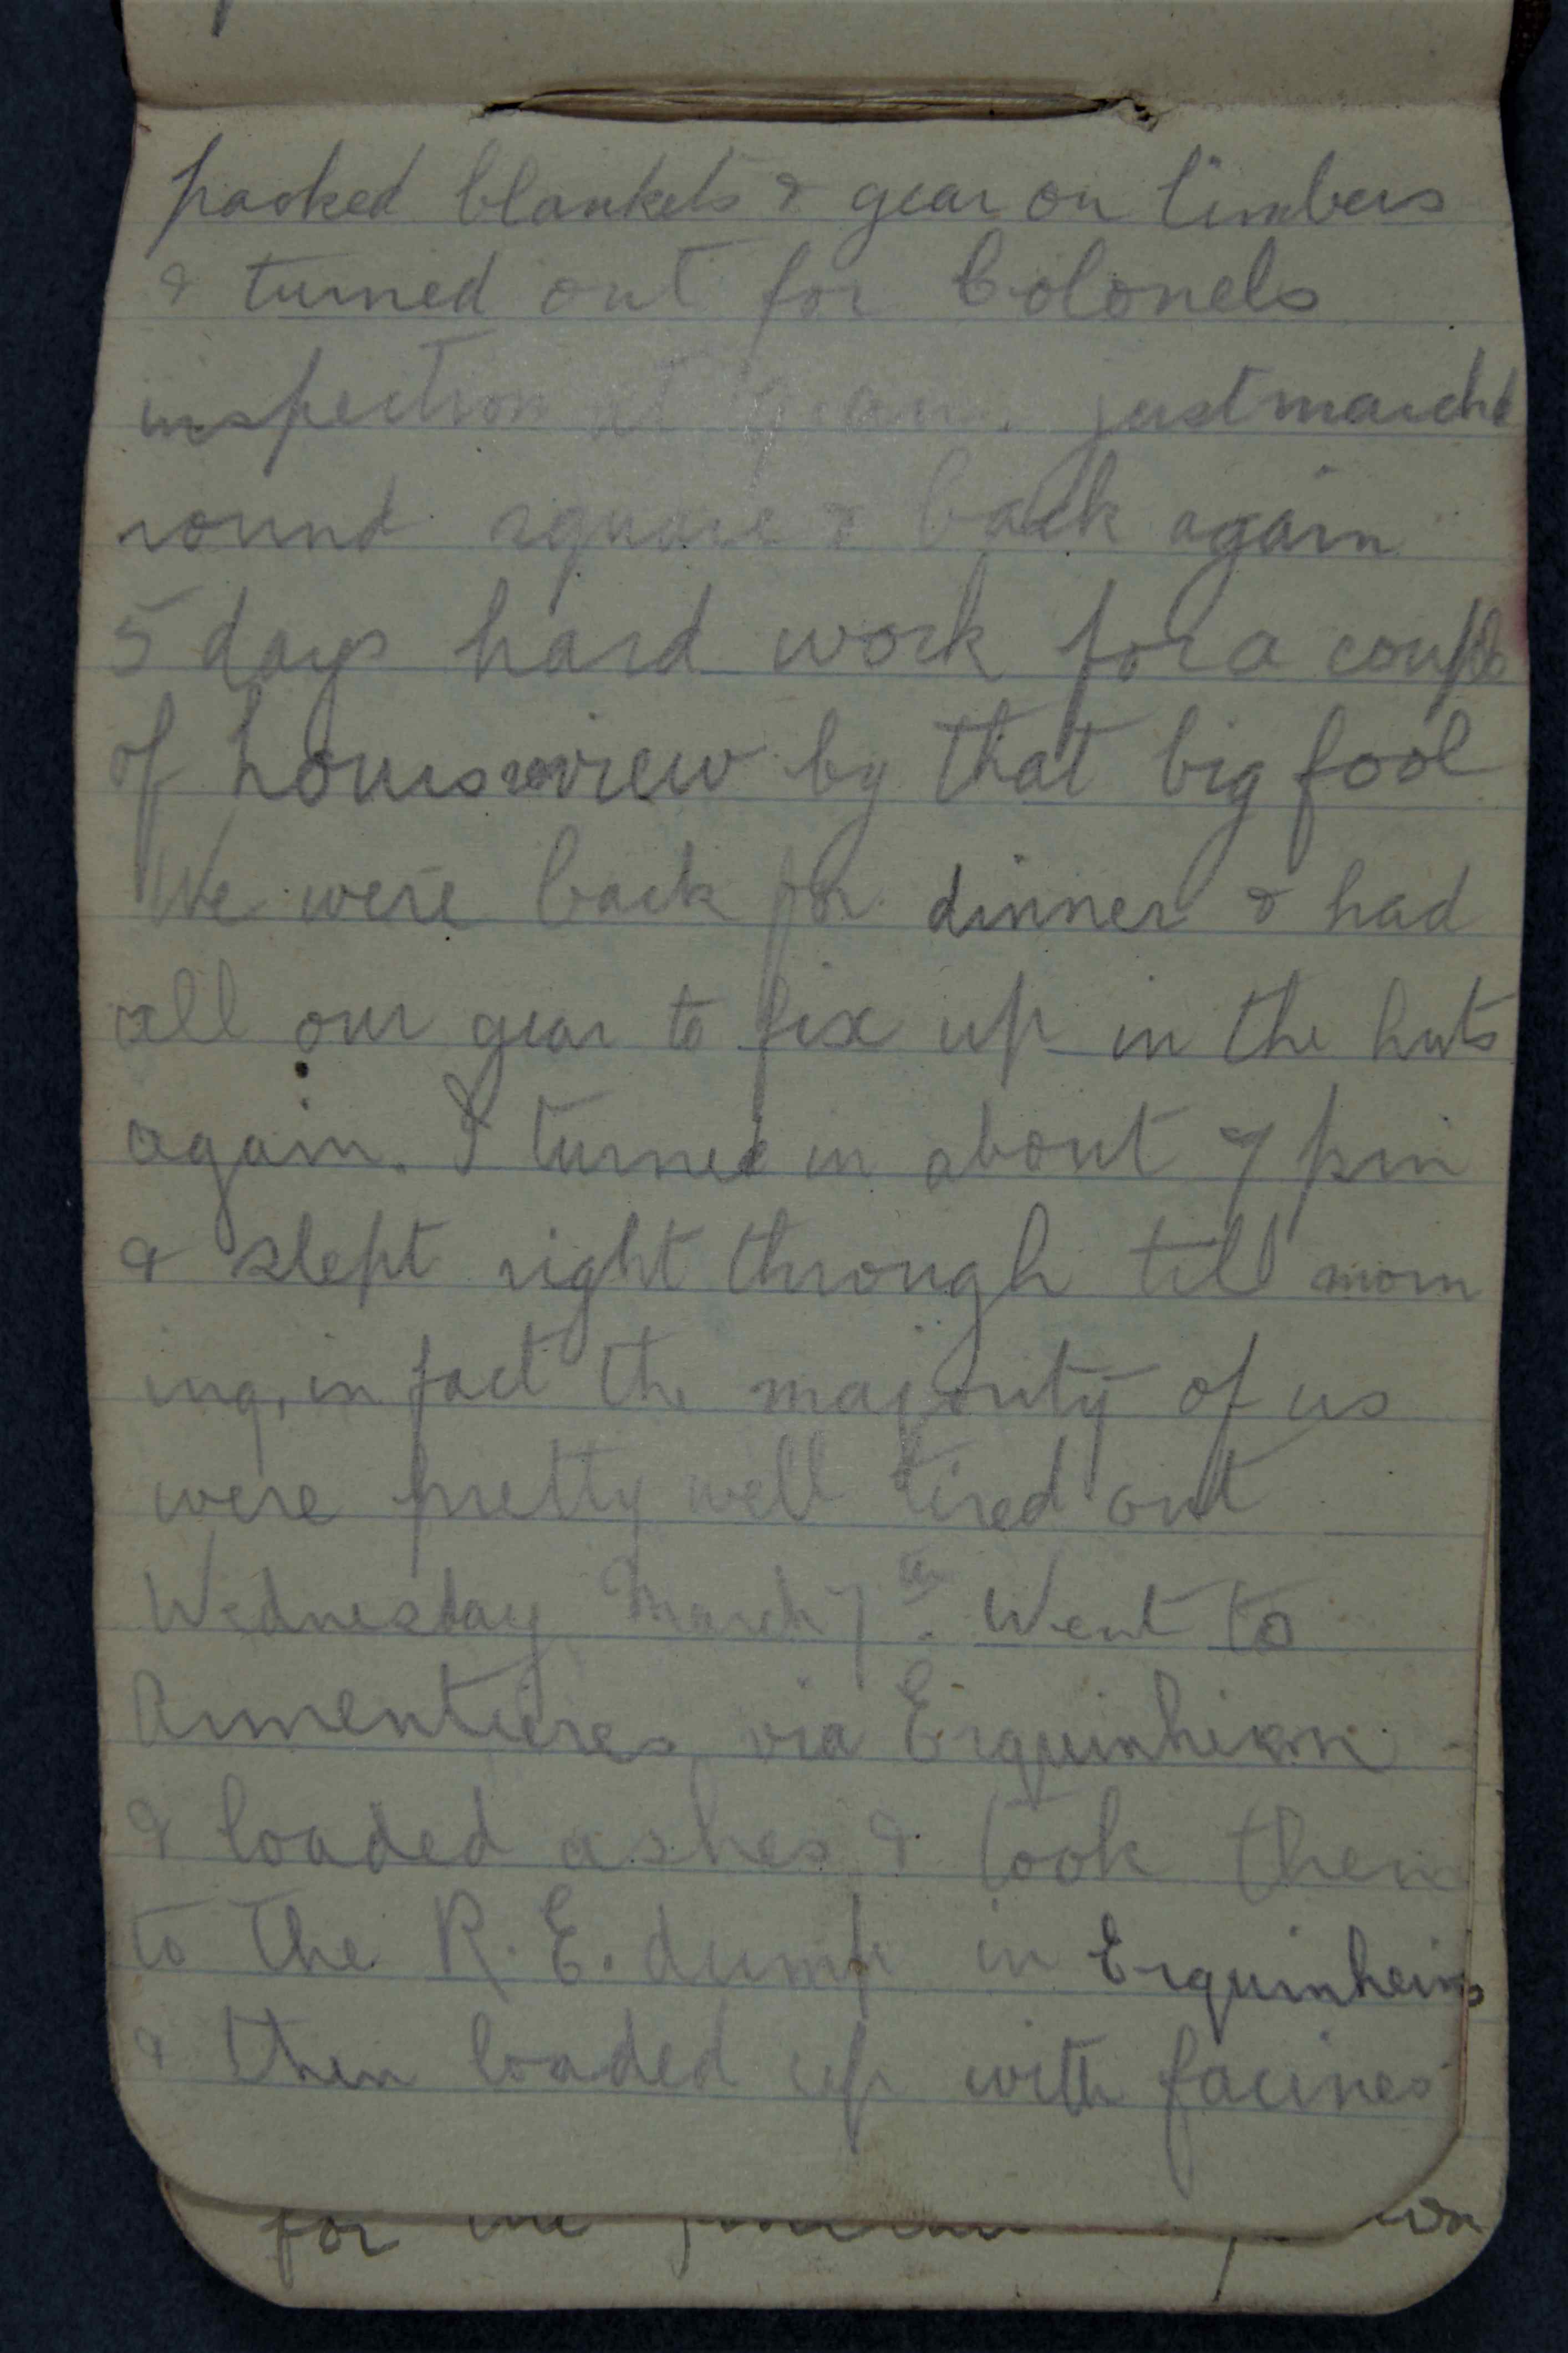 packed blankets & gear on limbers
& turned out for Colonels
inspection at am. just marchd
round square & back again
5 days hard work for a couple
of hours review by that big fool
We were back for dinner & had
all our gear to fix up in the huts
again. I turned in about 7 pm
& slept right through till morn
ing, in fact the majority of us
were pretty well tired out
Wednesday March 7th. Went to
Armentieres via
& loaded ashes & took them
to the R.E. dump in
& then loaded up with facines
for the